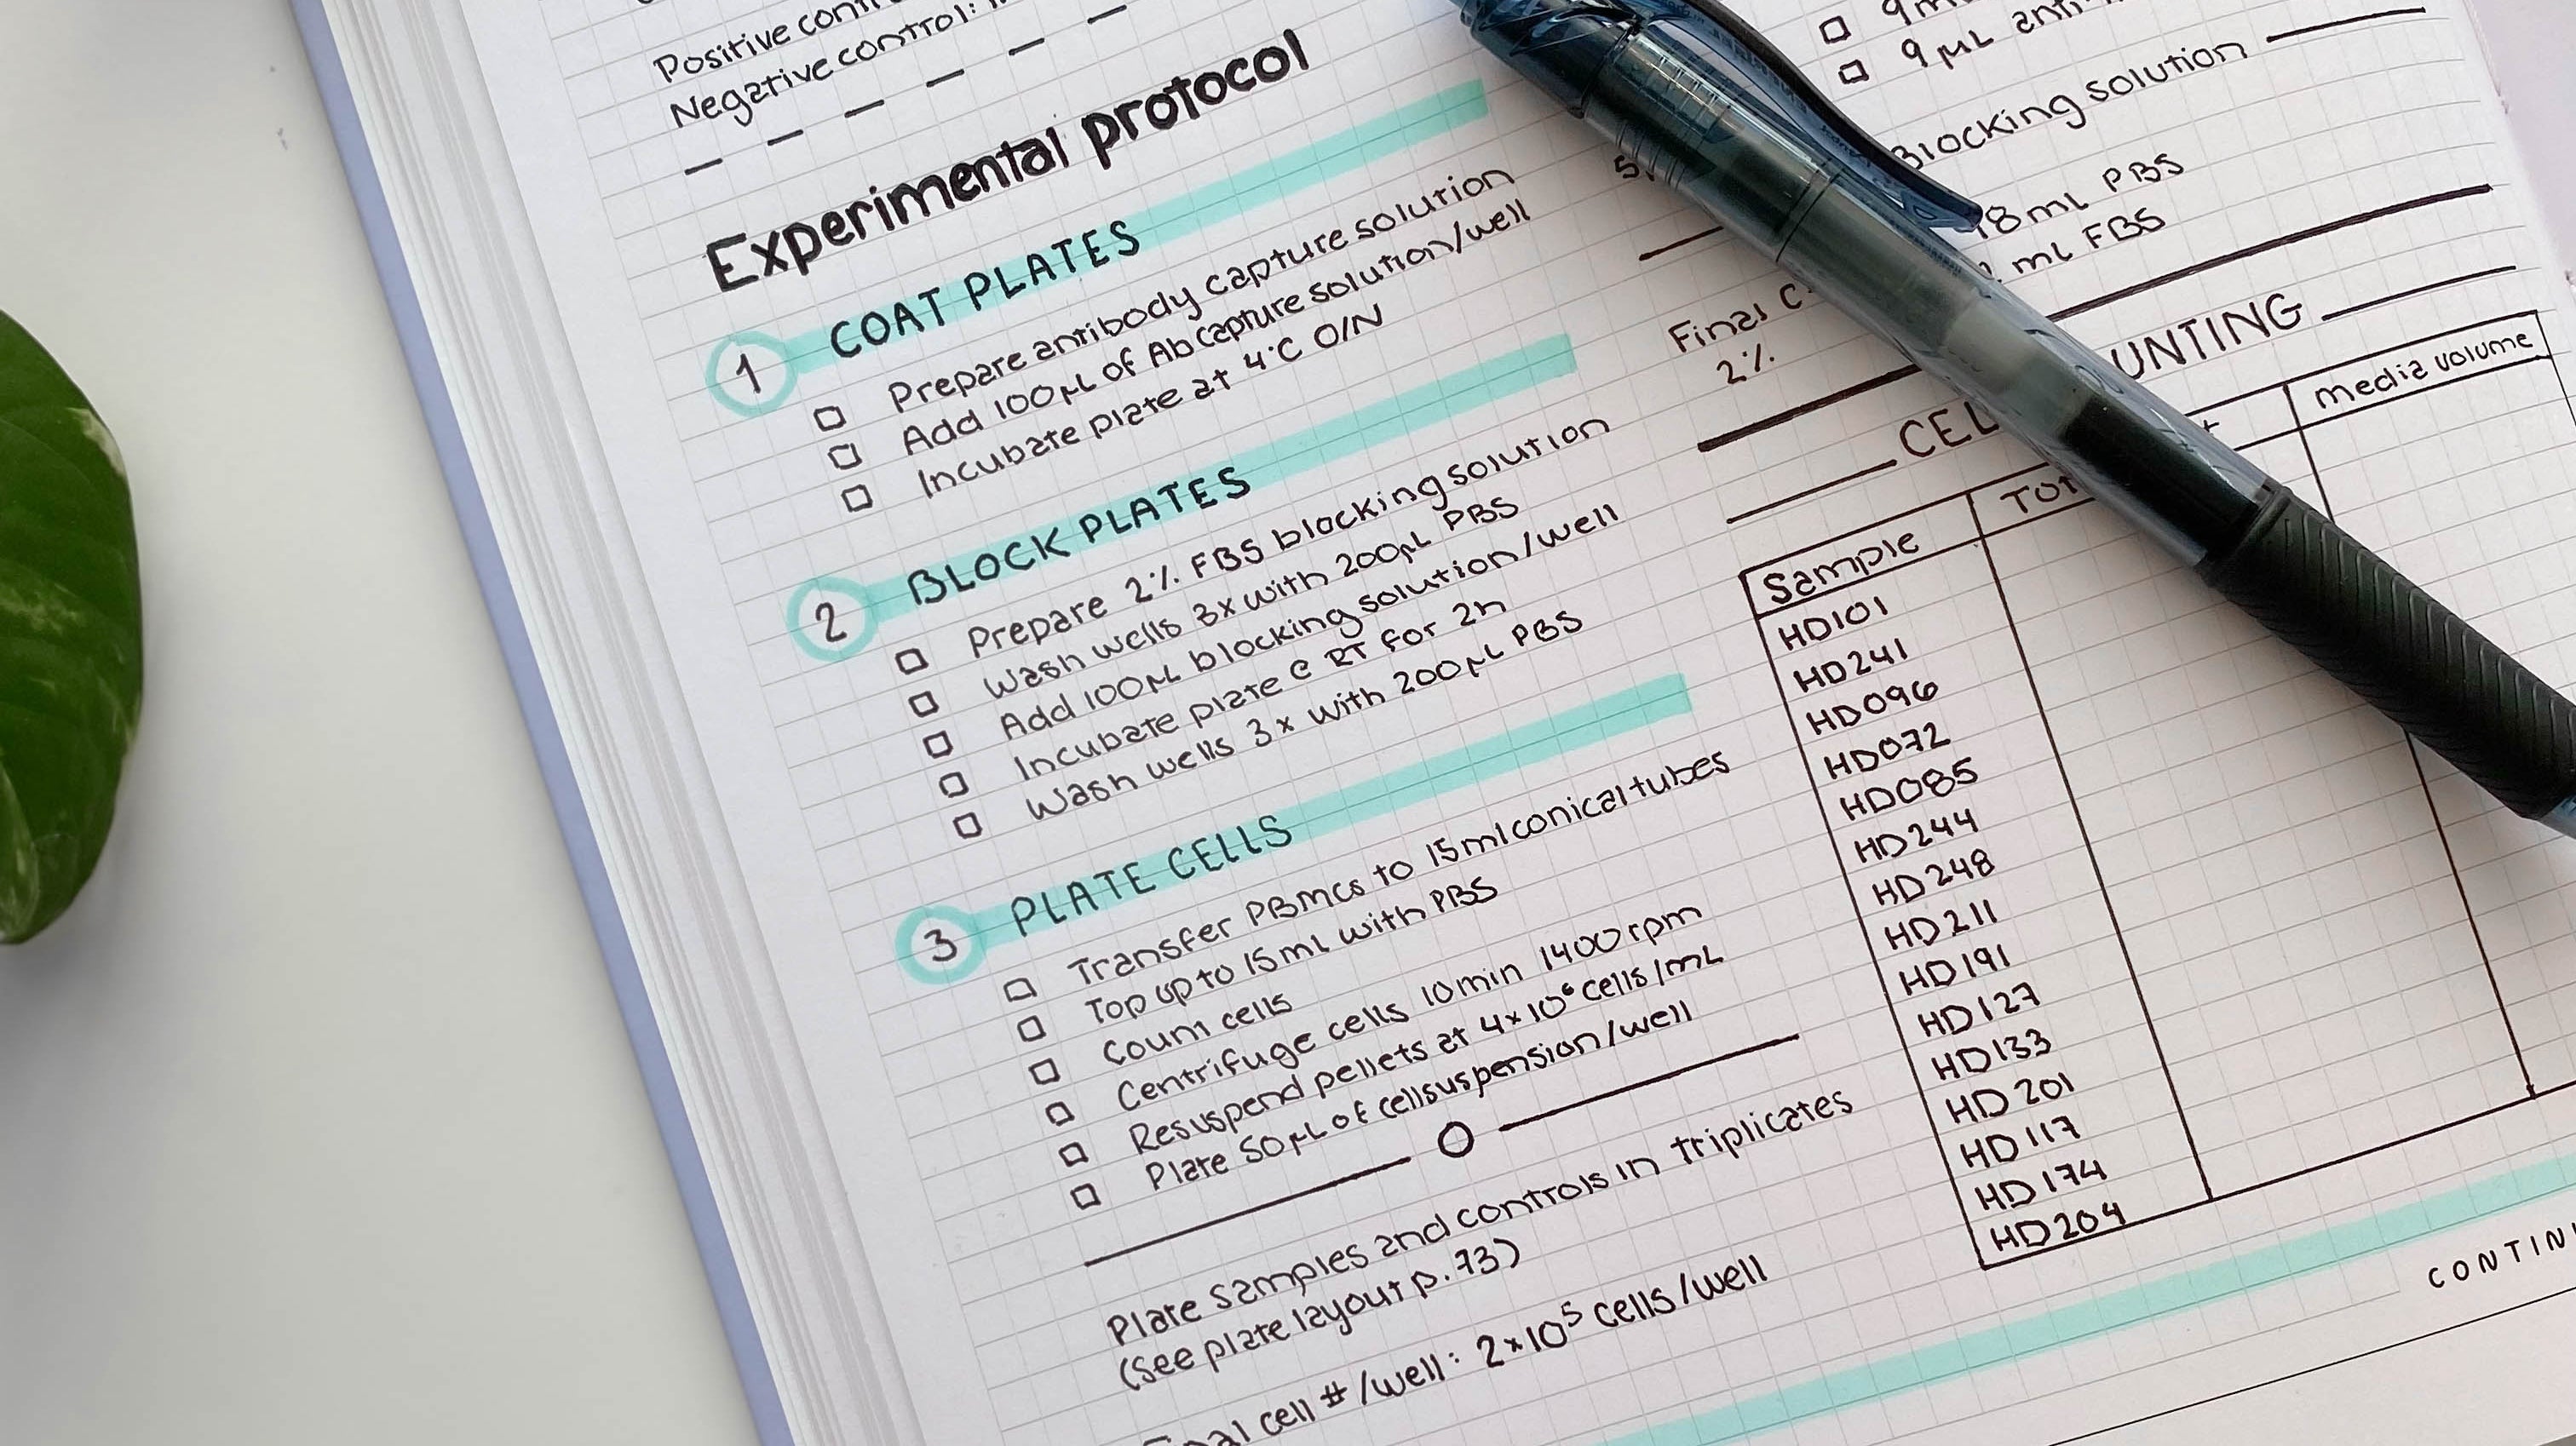 Positive
Negative control:
Experimental protocol
1 COAT PLATES
Prepare antibody capture solution
Add 100μL of Ab capture solution/well
Incubate plate at 4°C O/N
2 BLOCK PLATES
Prepare 2% FBS blocking solution
Wash wells 3x with 200μL PBS
Add 100μL blocking solution/well
Incubate plate @ RT for 2h
Wash wells 3x with 200μL PBS
3 PLATE CELLS
Transfer PBMCs to 15ml conical tubes
Top up to 15mL with PBS
Count cells
Centrifuge cells 10min 1400rpm
Resuspend pellets at 4x10⁶ cells/mL
Plate 50μL of cell suspension/well
Plate samples and controls in triplicates
(see plate layout p.73)
cell #/well: 2x10⁵ cells/well
9 μL
Blocking solution
mL PBS
mL FBS
Final
2%
media volume
Sample
HD101
HD241
HD096
HD072
HD085
HD244
HD248
HD211
HD191
HD127
HD133
HD201
HD117
HD174
HD204